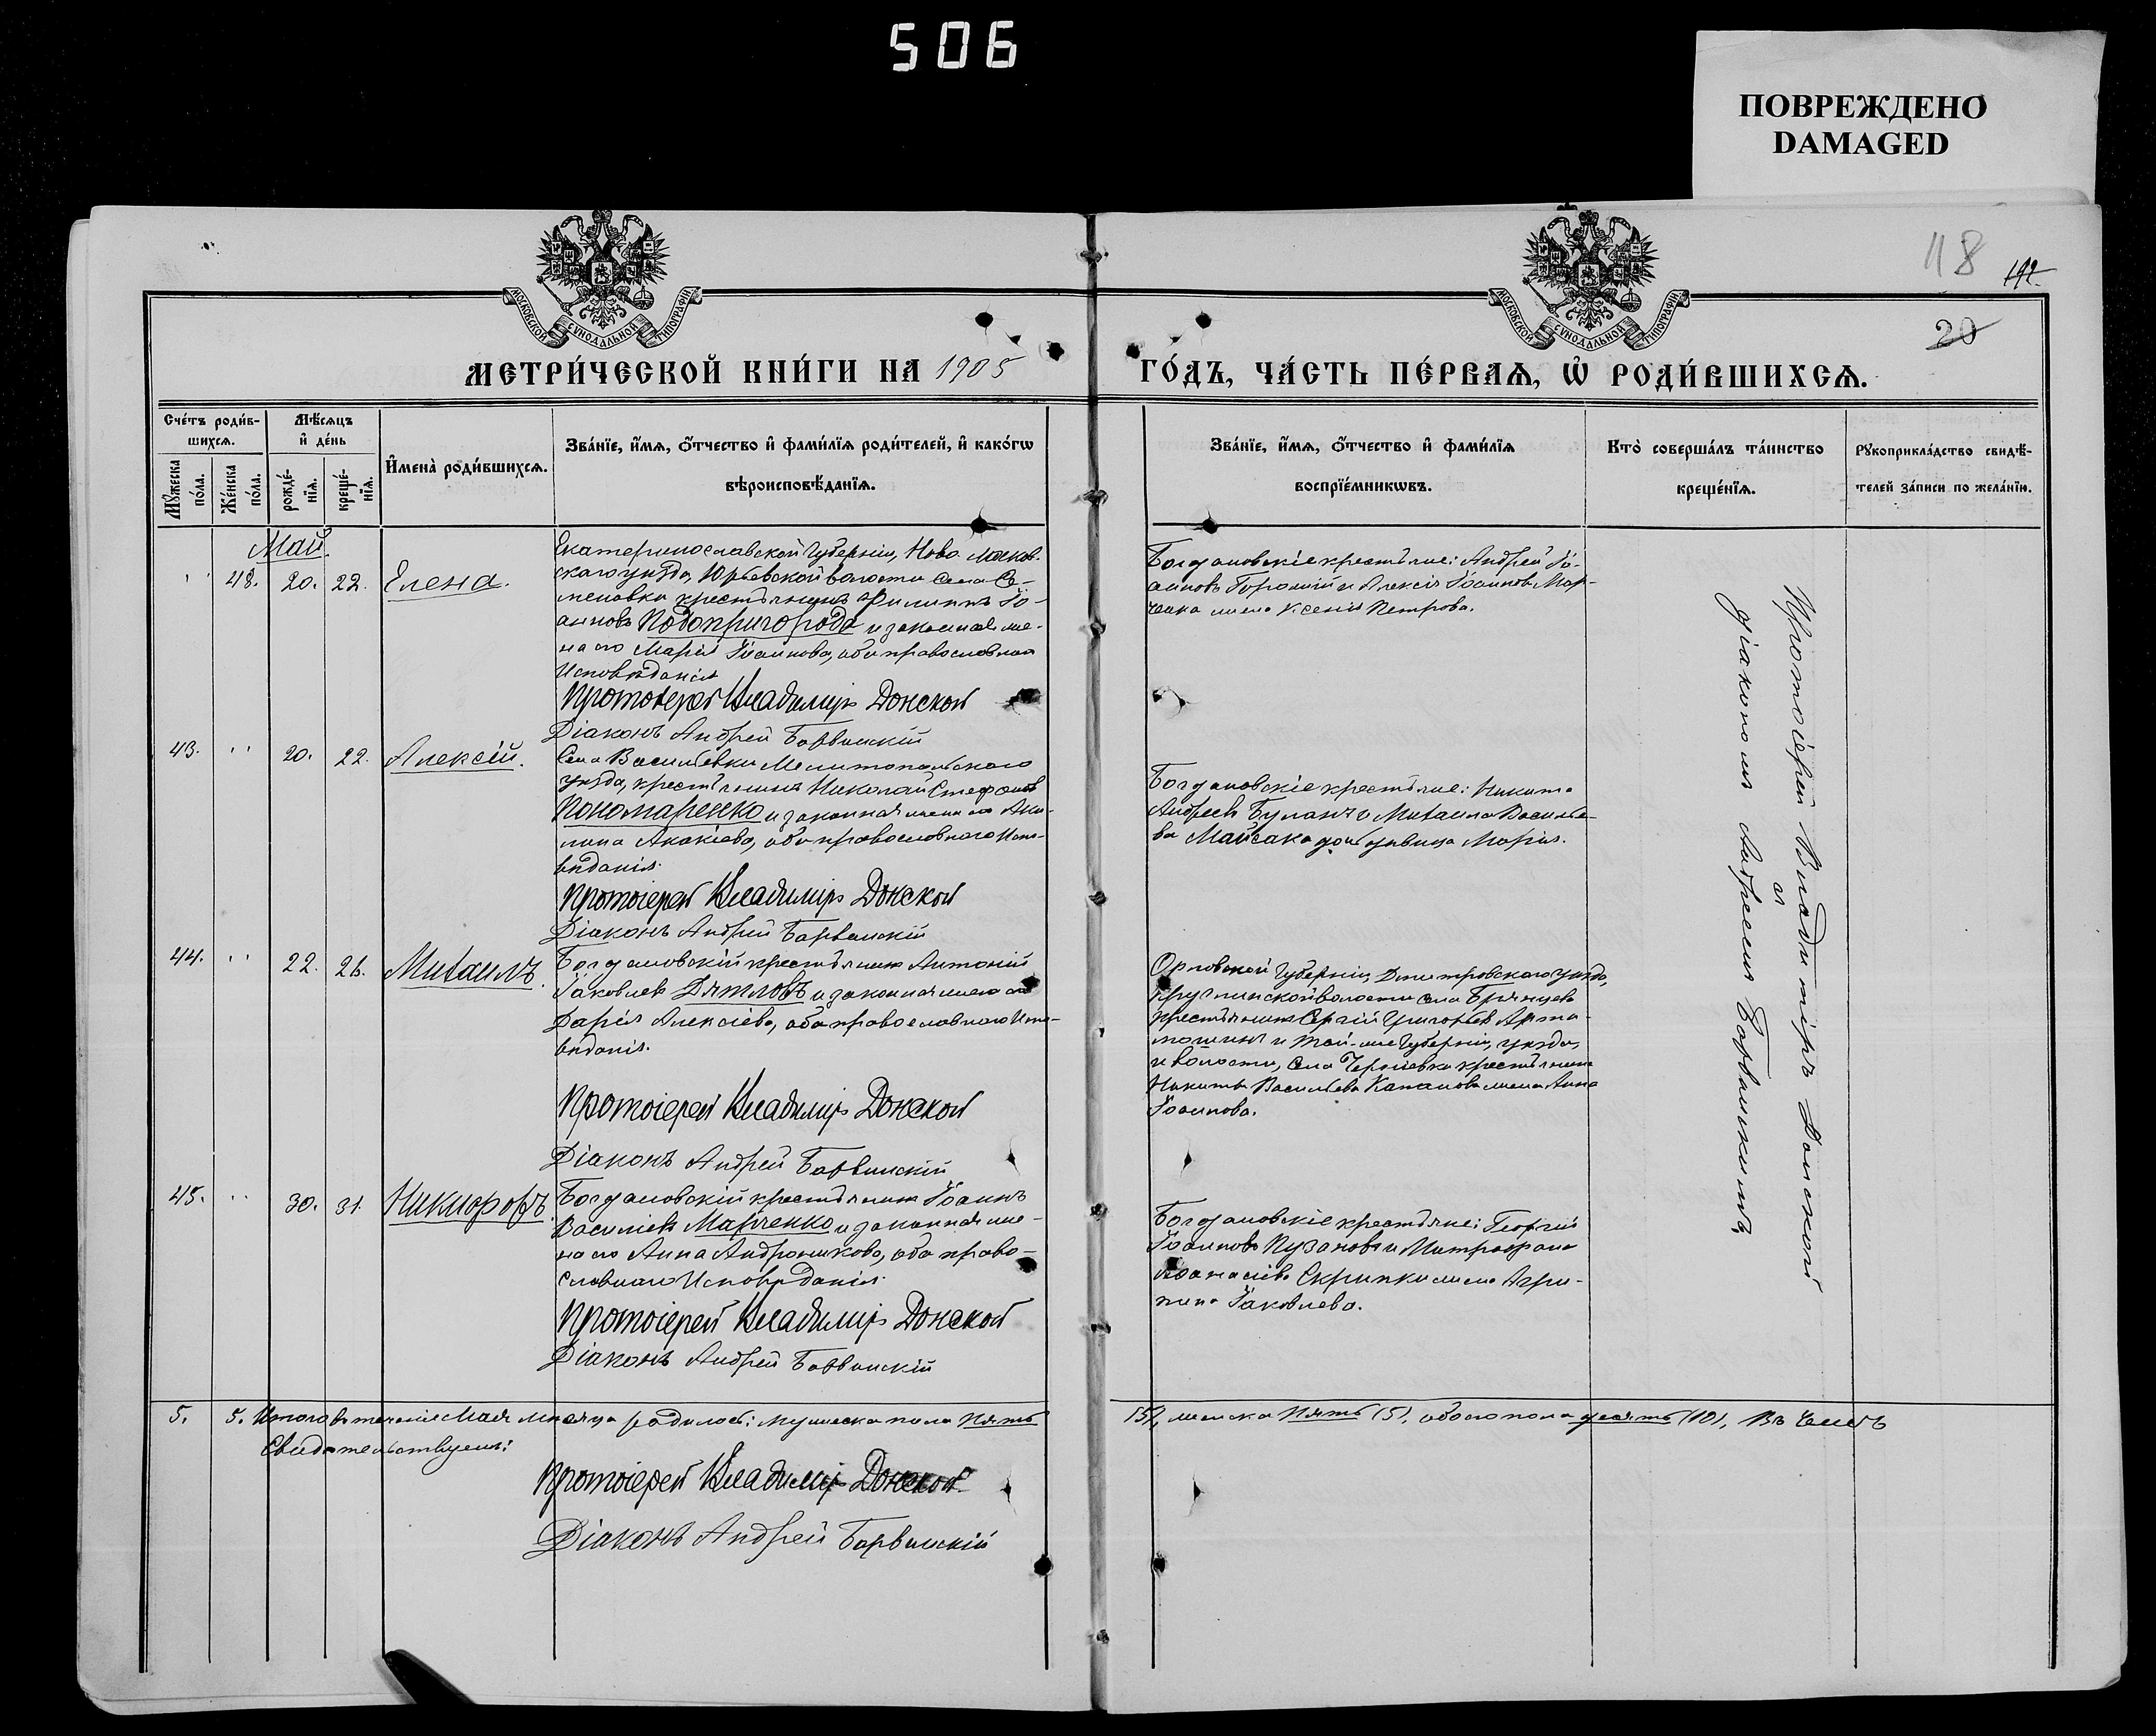 506
ПОВРЕЖДЕНО
DAMAGED
118
192
20
МОСКОВСКОЙ СѴНОДАЛЬНОЙ ТИПОГРАФІИ
МОСКОВСКОЙ СѴНОДАЛЬНОЙ ТИПОГРАФІИ
МЕТРИ́ЧЕСКОЙ КНИ́ГИ НА 1905
ГО́ДЪ, ЧА́СТЬ ПЕ́РВАѦ, Ѡ҆ РОДИ́ВШИХСѦ.
Сче́тъ роди́в-
шихсѧ.
Мꙋжеска по́ла.
Же́нска по́ла.
Мѣ́сѧцъ
и҆ де́нь
рожде́-
нїѧ.
креще́-
нїѧ.
И҆мена̀ роди́вшихсѧ.
Зва́нїе, и҆́мѧ, ѻ҆́тчество и҆ фами́лїѧ роди́телей, и҆ како́гѡ
вѣроисповѣ́данїѧ.
Зва́нїе, и҆́мѧ, ѻ҆́тчество и҆ фами́лїѧ
воспрїе́мникѡвъ.
Кто̀ соверша́лъ та́инство
креще́нїѧ.
Рꙋкоприкла́дство свидѣ́-
телей за́писи по жела́нїю.
Май.
48. 20. 22. Елена.
Екатеринославской Губерніи, Ново-Москов-
скаго уѣзда, Юрьевской волости Села Се-
меновки крестьянинъ Филиппъ Іо-
анновъ Подопригорода и законная же-
на его Марія Іоаннова, оба православнаго
Исповѣданія
Протоіерей Владиміръ Донской
Діаконъ Андрей Барвинскій
Богдановскіе крестьяне: Андрей Іо-
анновъ Горошій и Алексія Іоаннова Мар-
ченка жена Ксенія Петрова.
43. 20. 22. Алексій.
Села Васильевки Мелитопольскаго
уѣзда, крестьянинъ Николай Стефановъ
Пономаренко и законная жена его Аки-
лина Акакіева, оба православнаго Испо-
вѣданія.
Протоіерей Владиміръ Донской
Діаконъ Андрей Барвинскій
Богдановскіе крестьяне: Никита
Андреевъ Буланъ и Михаила Василье-
ва Майсака дочь дѣвица Марія.
44. 22. 26. Михаилъ.
Богдановскій крестьянинъ Антоній
Іаковлевъ Дятловъ и законная жена его
Дарія Алексіева, оба православнаго Испо-
вѣданія.
Протоіерей Владиміръ Донской
Діаконъ Андрей Барвинскій
Орловской Губерніи, Дмитровскаго уѣзда,
волости села Брянцева
крестьянинъ Сергій Григорьевъ Арта-
мошинъ и той-же Губерніи, уѣзда,
и волости, Села крестьянина
Никиты Васильева жена Анна
Іоаннова.
45. 30. 31. Никифоръ.
Богдановскій крестьянинъ Іоаннъ
Василіевъ Марченко и законная же-
на его Анна Андроникова, оба право-
славнаго Исповѣданія.
Протоіерей Владиміръ Донской
Діаконъ Андрей Барвинскій
Богдановскіе крестьяне: Георгій
Іоанновъ Пузановъ и Митрофана
Афанасіева Скрипки жена Агри-
пина Іаковлева.
Протоіерей Владиміръ Донской
съ
діакономъ Андреемъ Барвинскимъ
5. 5. Итого въ теченіе Мая мѣсяца родилось: мужеска пола пять
(5), женска пять (5), обоего пола десять (10), Въ чемъ
Свидѣтельствуемъ:
Протоіерей Владиміръ Донской
Діаконъ Андрей Барвинскій